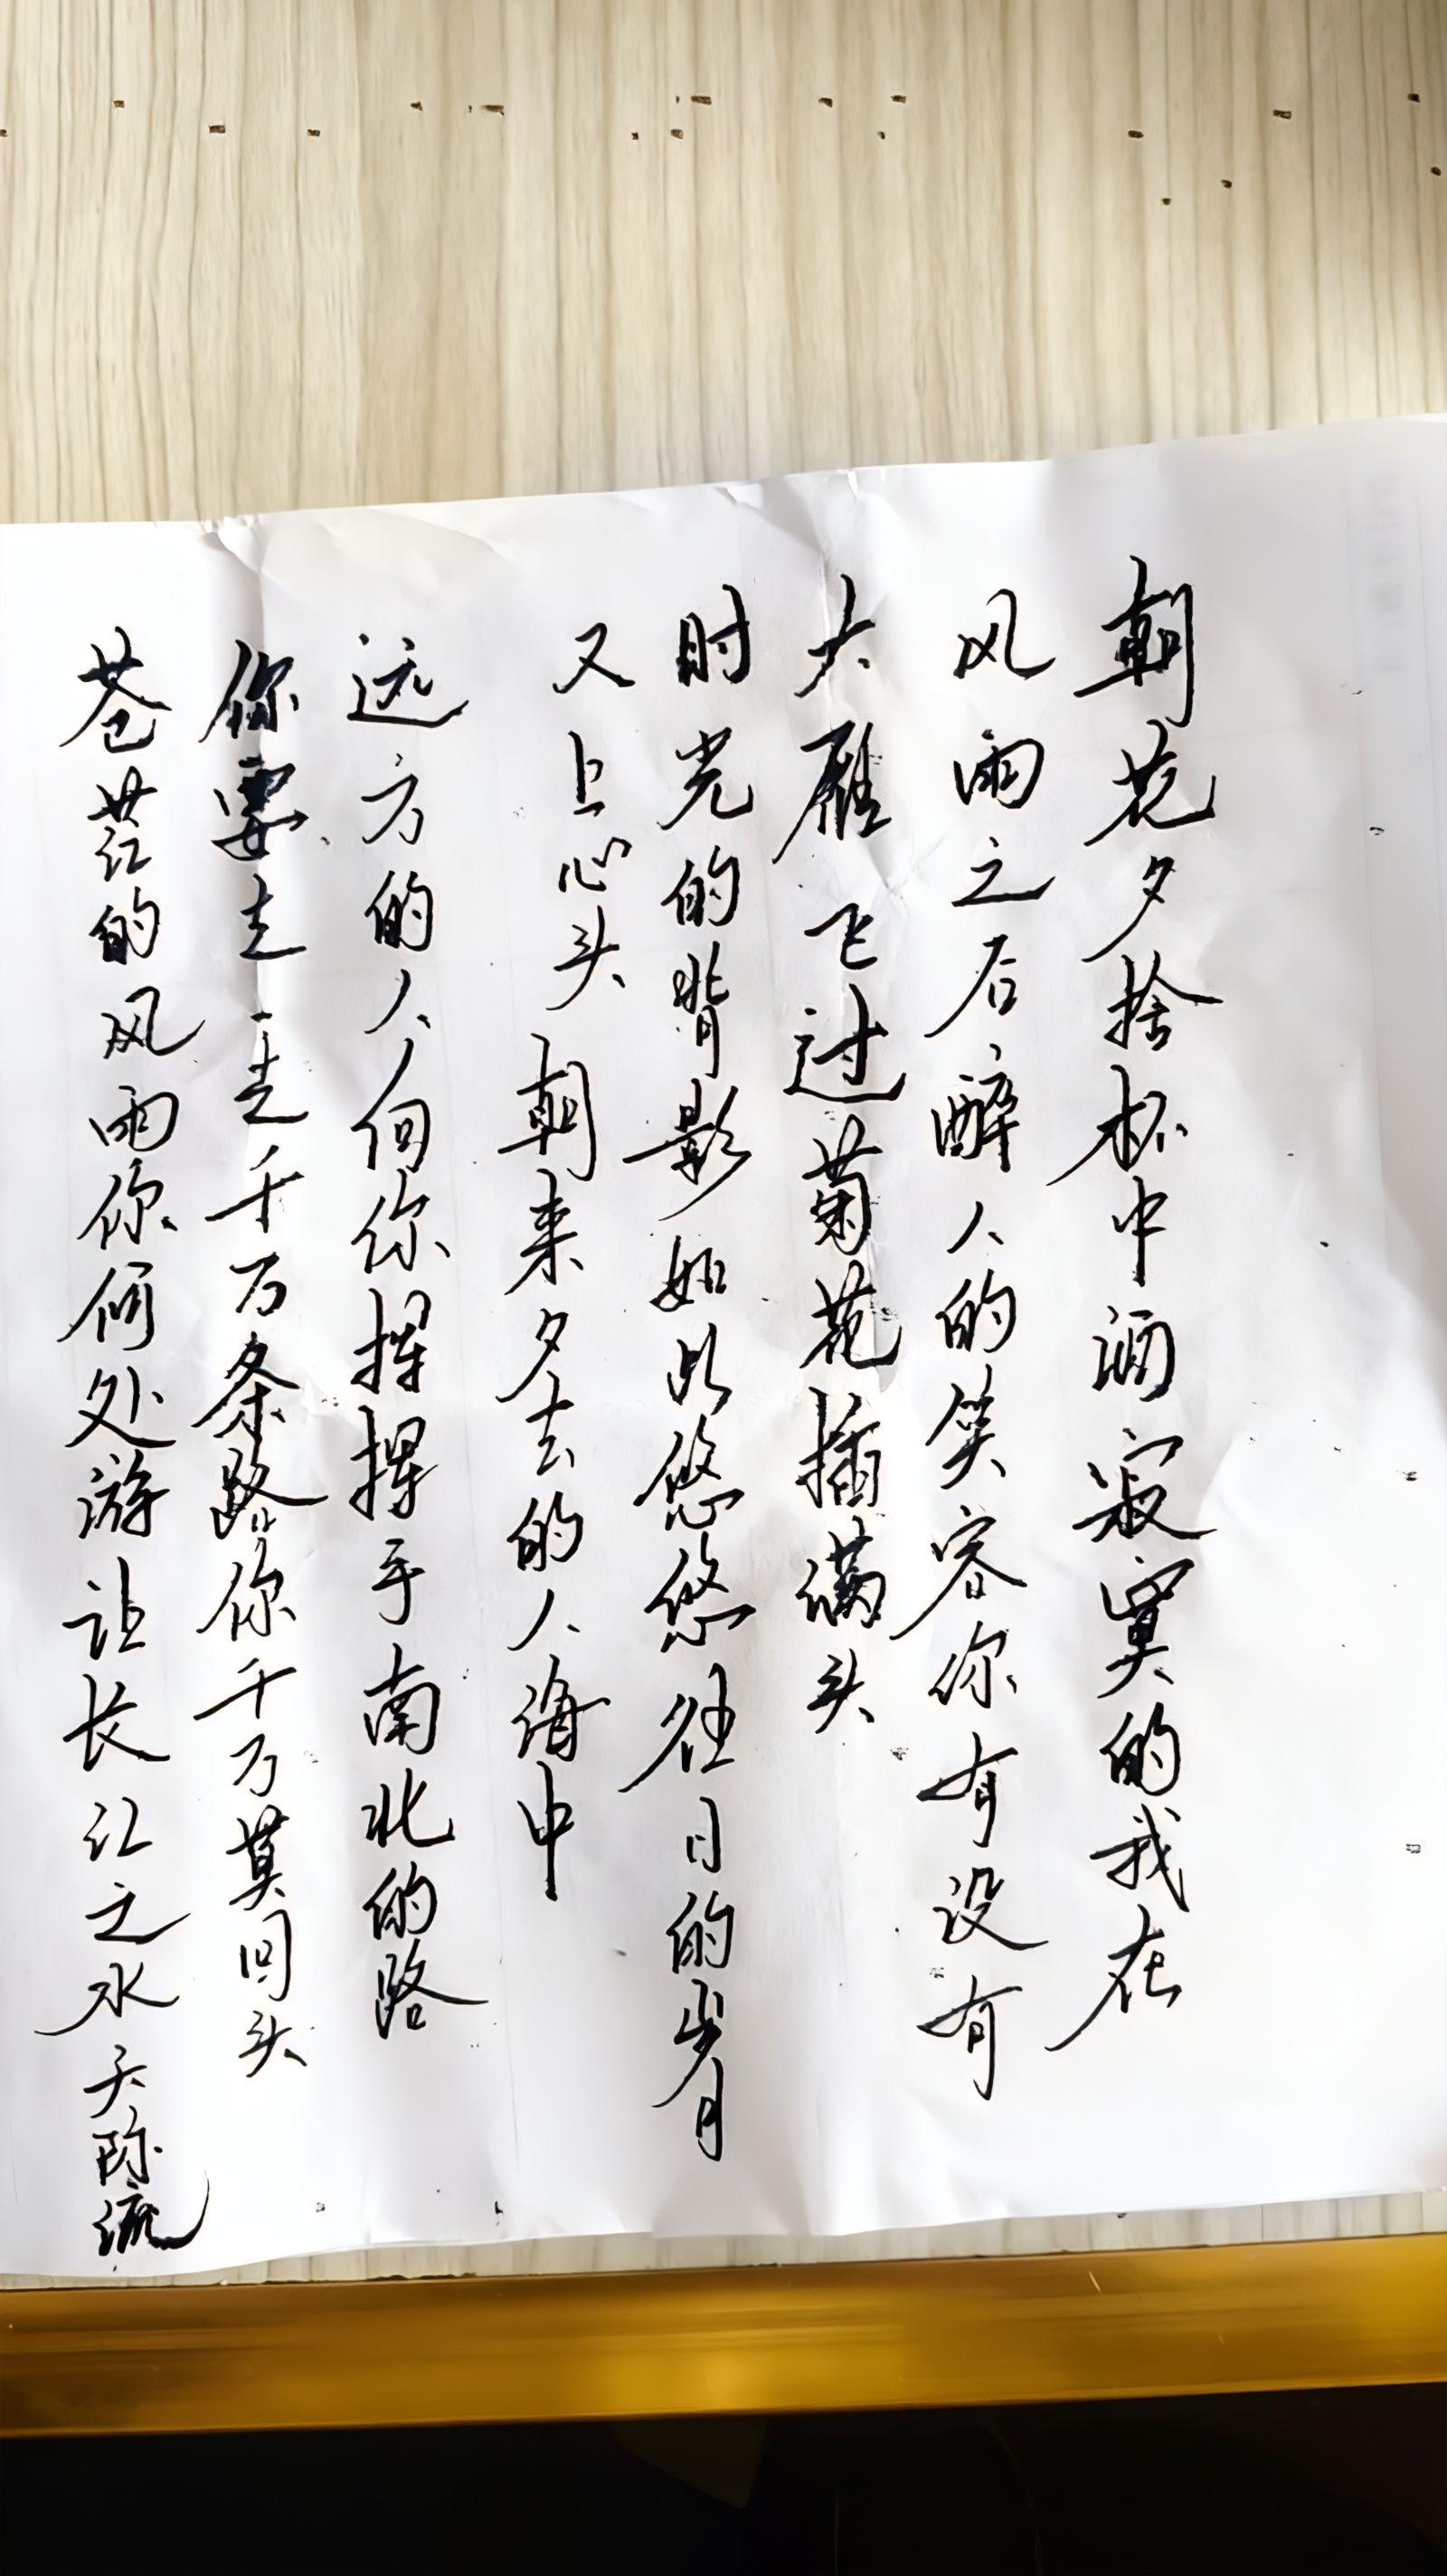 朝花夕捨杯中酒寂寞的我在
风雨之后醉人的笑容你有没有
大雁飞过菊花插满头
时光的背影如此悠悠往日的岁月
又上心头朝来夕去的人海中
远方的人向你挥挥手南北的路
你要走一走千万条路你千万莫回头
苍茫的风雨你何处游让长江之水天际流